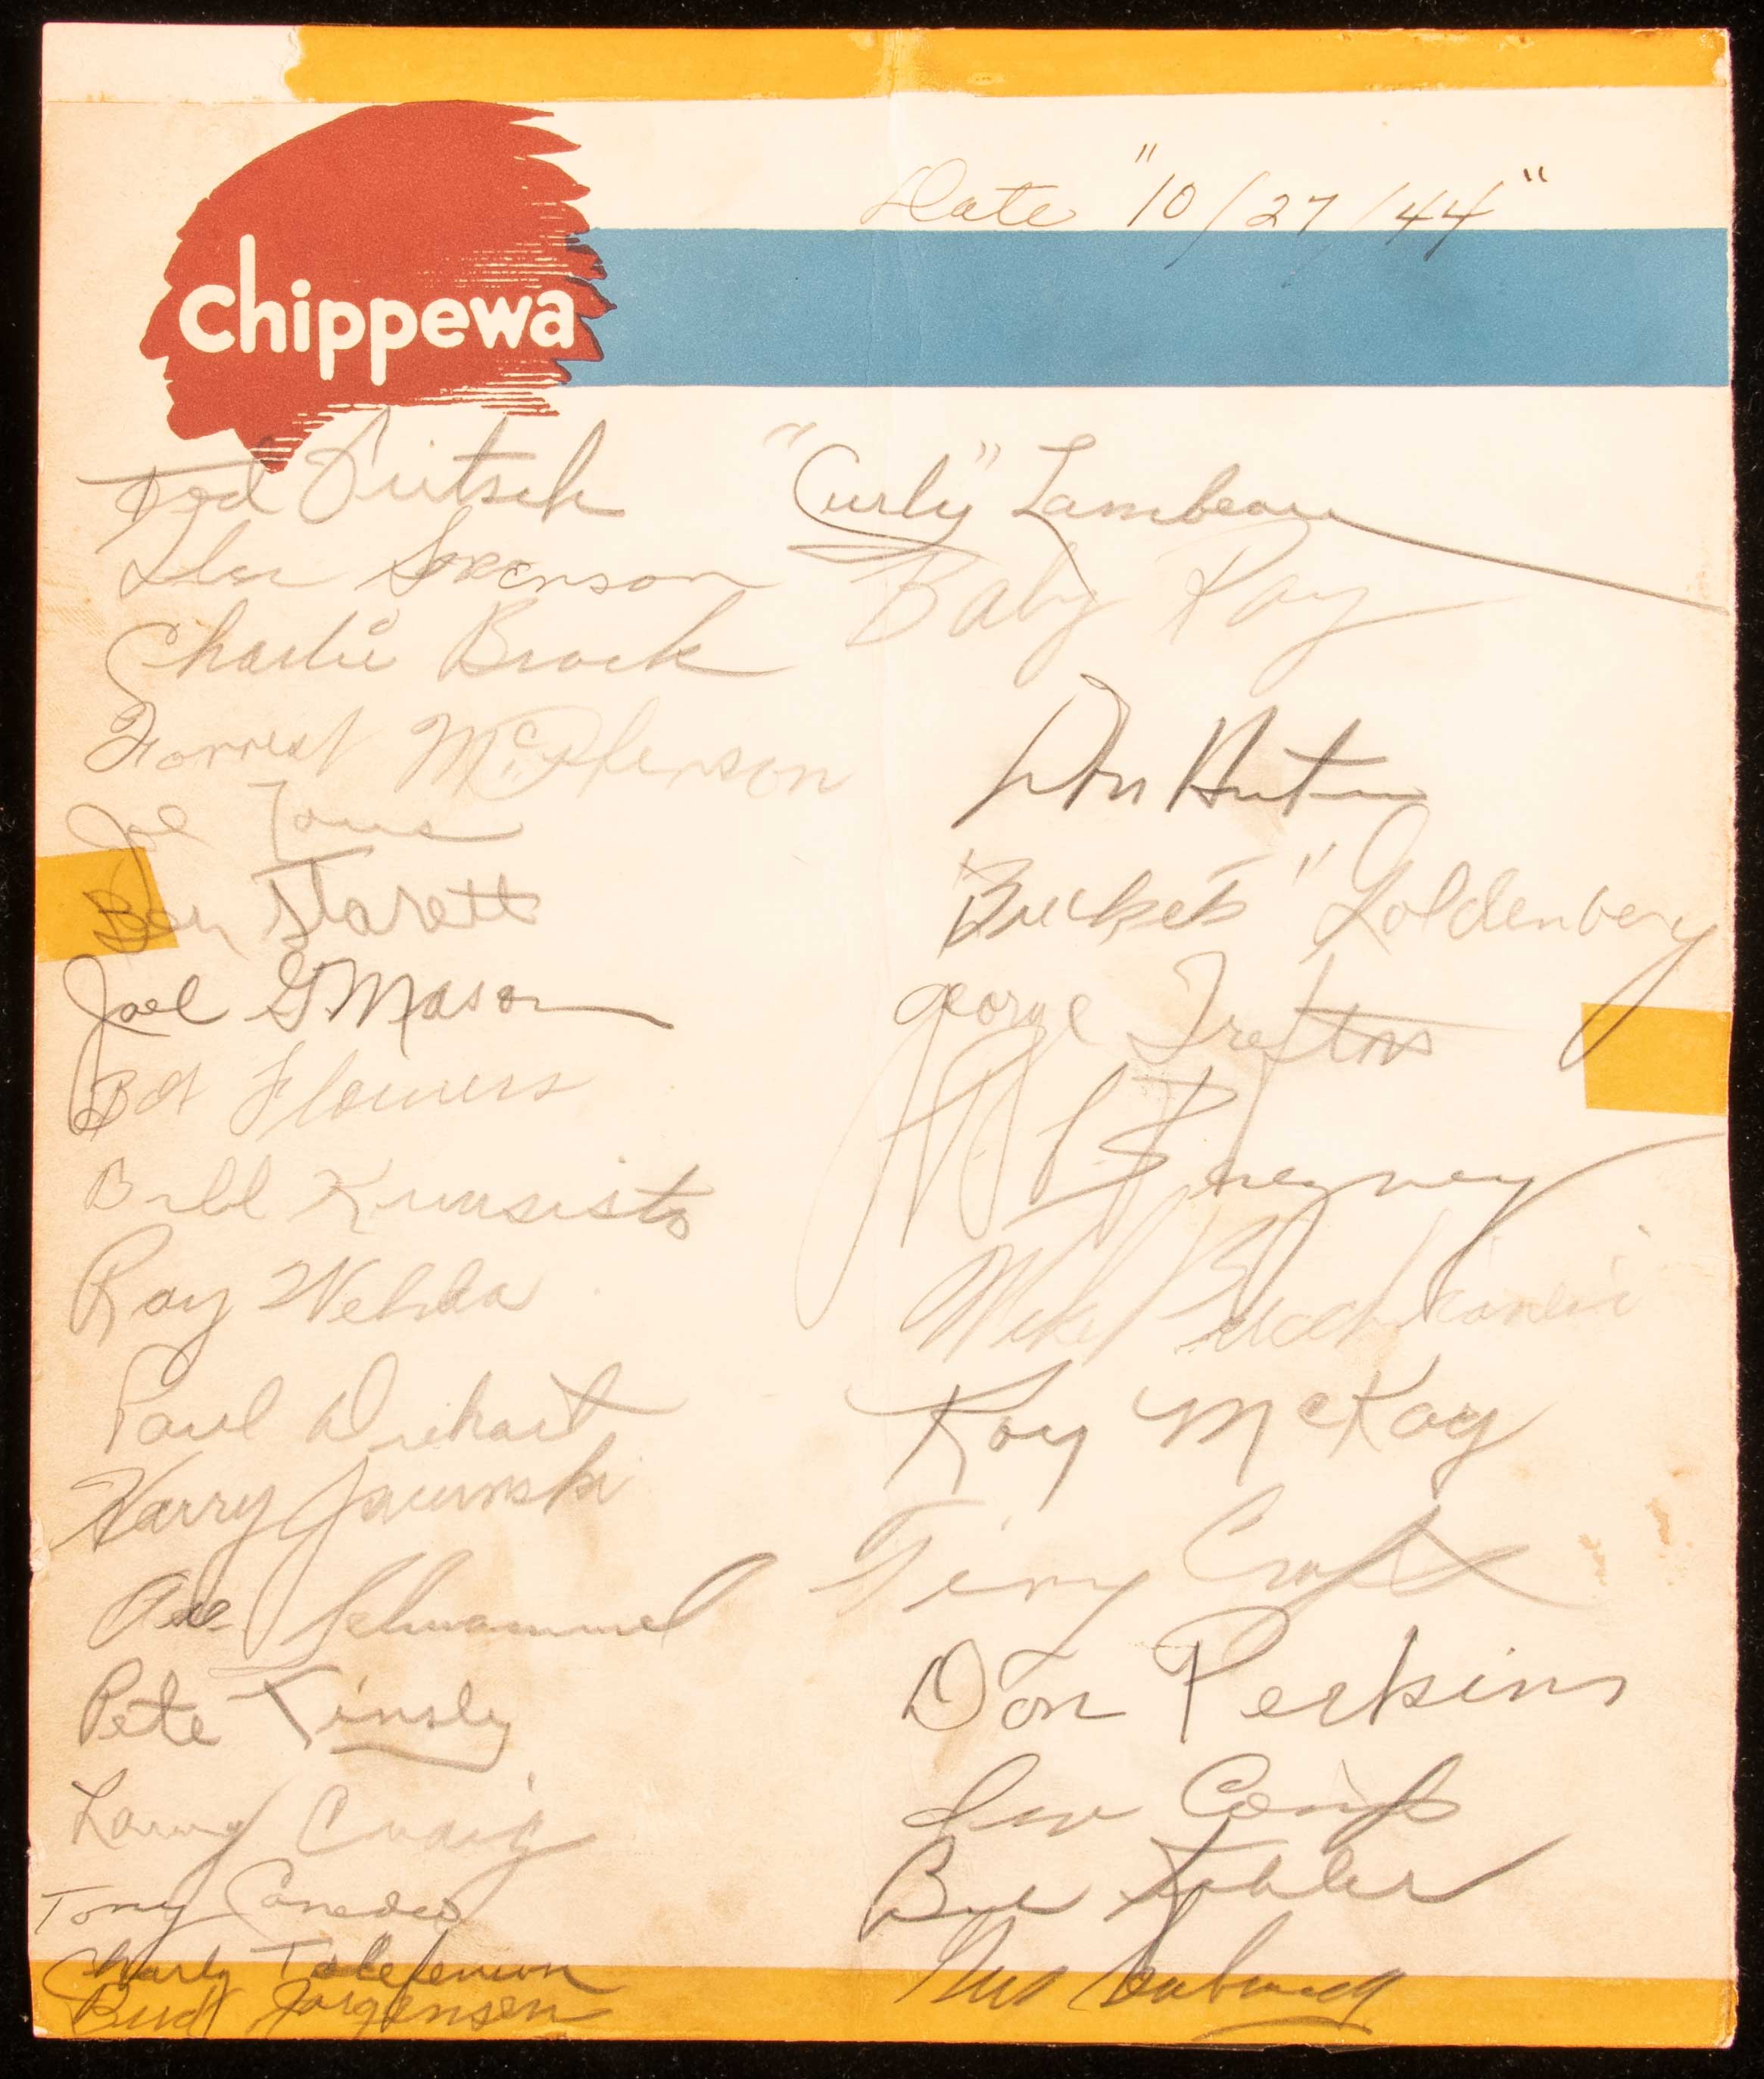 Date "10/27/44"
Chippewa
Ted Fritsch
Glen Sorenson
Charlie Brock
Forrest McPherson
Joe
Ben Starrett
Joel G Mason
Bob Flowers
Bill Kuusisto
Ray Wehba
Paul Duhart
Harry Jacunski
Ade Schwammel
Pete Tinsley
Larry Craig
Tony Canadeo
Charly Tollefson
Bud Jorgensen
"Curly" Lambeau
Baby Ray
Don Hutson
"Buckets" Goldenberg
George Trafton
Mike Bucchianeri
Roy McKay
Tiny Croft
Don Perkins
Irv Comp
Bob Kahler